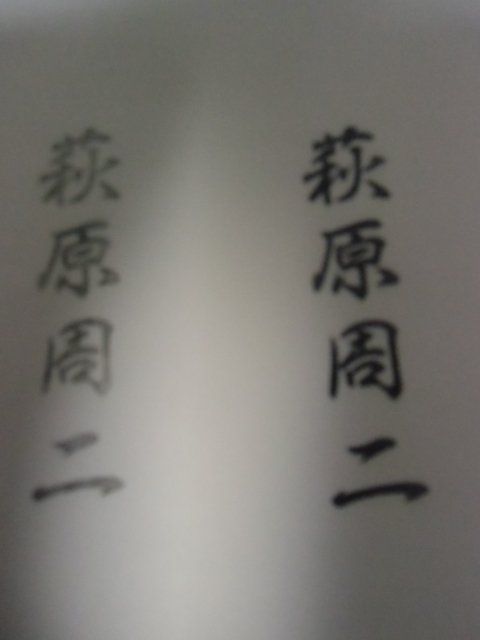 萩原周二
萩原周二